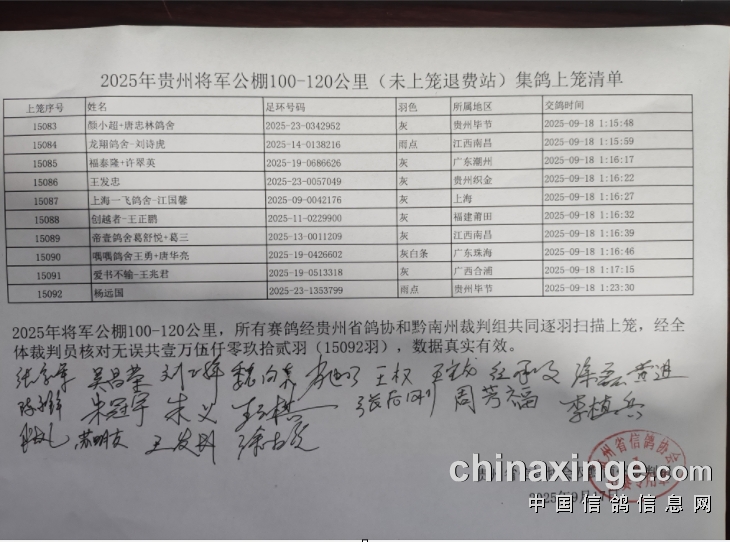 2025年贵州将军公棚100-120公里（未上笼退费站）集鸽上笼清单
上笼序号 姓名 足环号码 羽色 所属地区 交鸽时间
15083 颜小超+唐忠林鸽舍 2025-23-0342952 灰 贵州毕节 2025-09-18 1:15:48
15084 龙翔鸽舍-刘诗虎 2025-14-0138216 雨点 江西南昌 2025-09-18 1:15:59
15085 福泰隆+许翠英 2025-19-0686626 灰 广东潮州 2025-09-18 1:16:17
15086 王发忠 2025-23-0057049 灰 贵州织金 2025-09-18 1:16:22
15087 上海一飞鸽舍-江国馨 2025-09-0042176 灰 上海 2025-09-18 1:16:27
15088 创越者-王正鹏 2025-11-0229900 灰 福建莆田 2025-09-18 1:16:32
15089 帝壹鸽舍葛舒悦+葛三 2025-13-0011209 灰 江西南昌 2025-09-18 1:16:39
15090 嘱嘱鸽舍王勇+唐华亮 2025-19-0426602 灰白条 广东珠海 2025-09-18 1:16:46
15091 爱书不输-王兆君 2025-19-0513318 灰 广西合浦 2025-09-18 1:17:15
15092 杨远国 2025-23-1353799 雨点 贵州毕节 2025-09-18 1:23:30
2025年将军公棚100-120公里，所有赛鸽经贵州省鸽协和黔南州裁判组共同逐羽扫描上笼，经全
体裁判员核对无误共壹万伍仟零玖拾贰羽（15092羽），数据真实有效。
吴昌荣 王权
朱冠宇 朱义 周芳福 李植兵
州省信鸽协会
chinaxinge.com
2025年9月
中国信鸽信息网